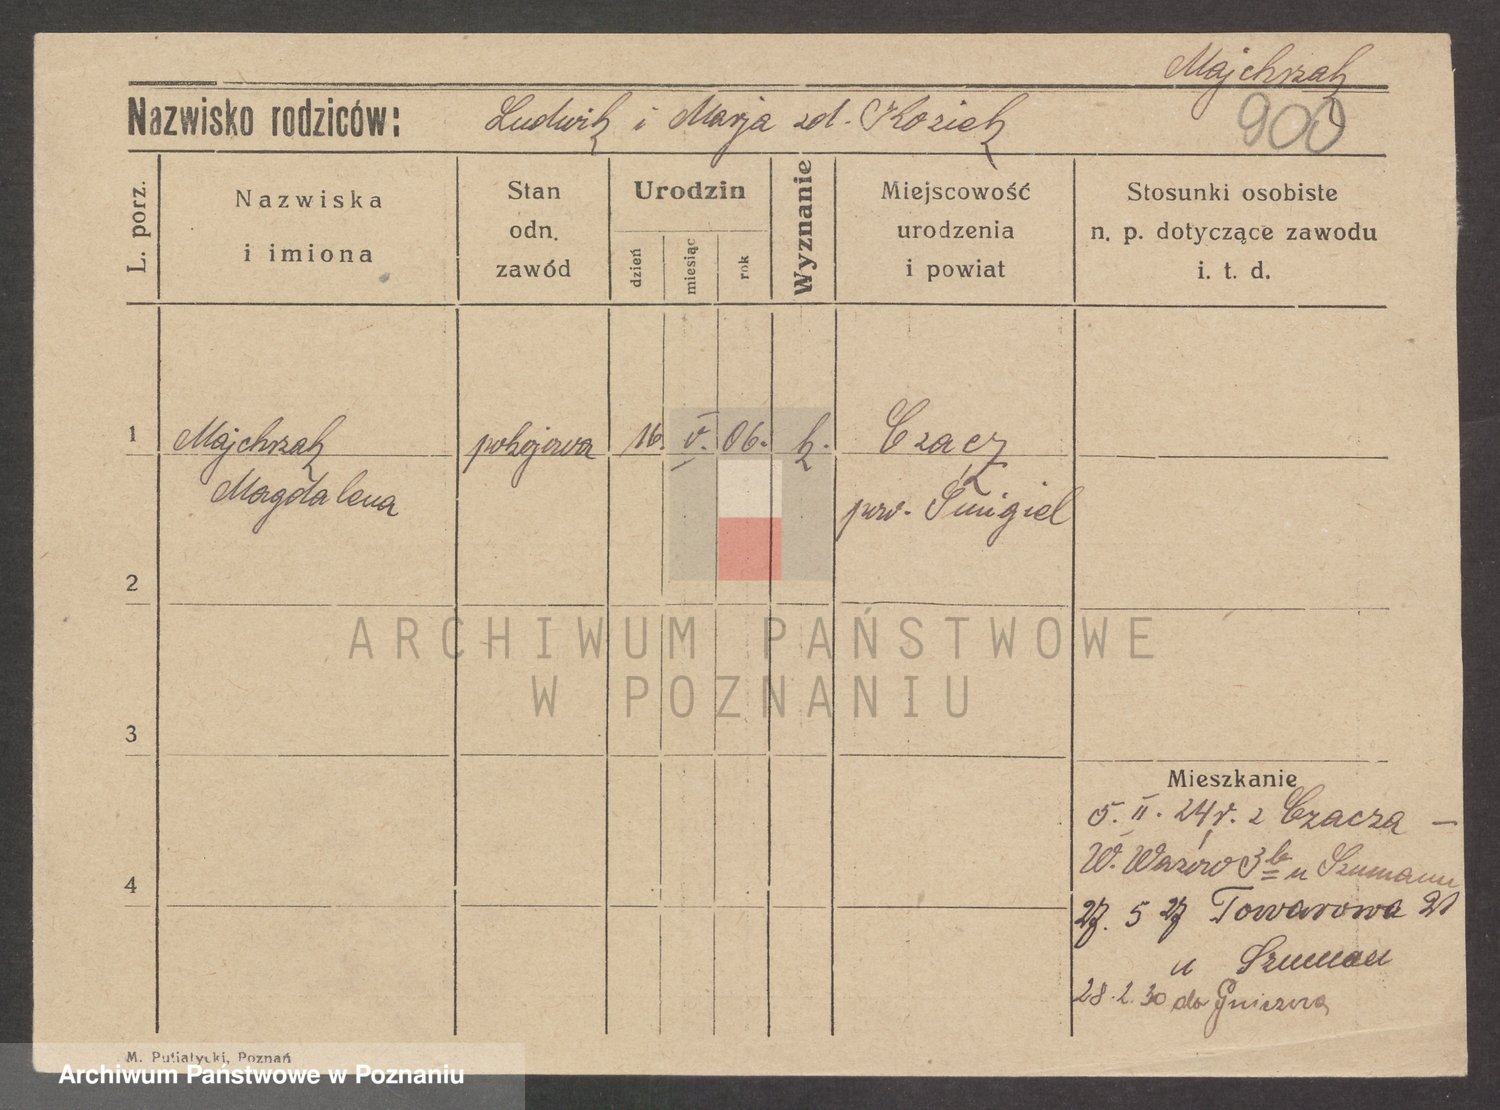 Majchrzak
Nazwisko rodziców: Ludwik i Marja zd. Koziek
900
L. porz.
Nazwiska
i imiona
Stan
odn.
zawód
Urodzin
dzień
miesiąc
rok
Wyznanie
Miejscowość
urodzenia
i powiat
Stosunki osobiste
n. p. dotyczące zawodu
i. t. d.
1 Majchrzak pokojowa 16. V. 06. k. Czacz
Magdalena pow. Śmigiel
2
ARCHIWUM PAŃSTWOWE
W POZNANIU
3
Mieszkanie
5. II. 24 r. z Czacza —
W. Wazów 3b u Szumann
4
27. 5 27 Towarowa 21
u Szuman
28. 2. 30 do Gniezna
M. Putiatycki, Poznań
Archiwum Państwowe w Poznaniu